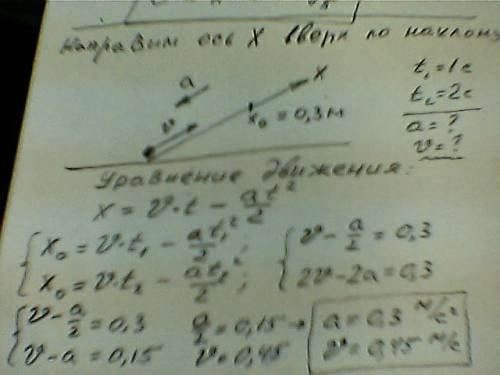 Направим ось X вверх по наклону
a
v
X
x₀ = 0,3 м
t₁ = 1 с
t₂ = 2 с
a = ?
v = ?
Уравнение движения:
x = v·t − at²/2
x₀ = v·t₁ − at₁²/2;
x₀ = v·t₂ − at₂²/2;
v − a/2 = 0,3
2v − 2a = 0,3
v − a/2 = 0,3
v − a = 0,15
a/2 = 0,15 →
v = 0,45
a = 0,3 м/с²
v = 0,45 м/с